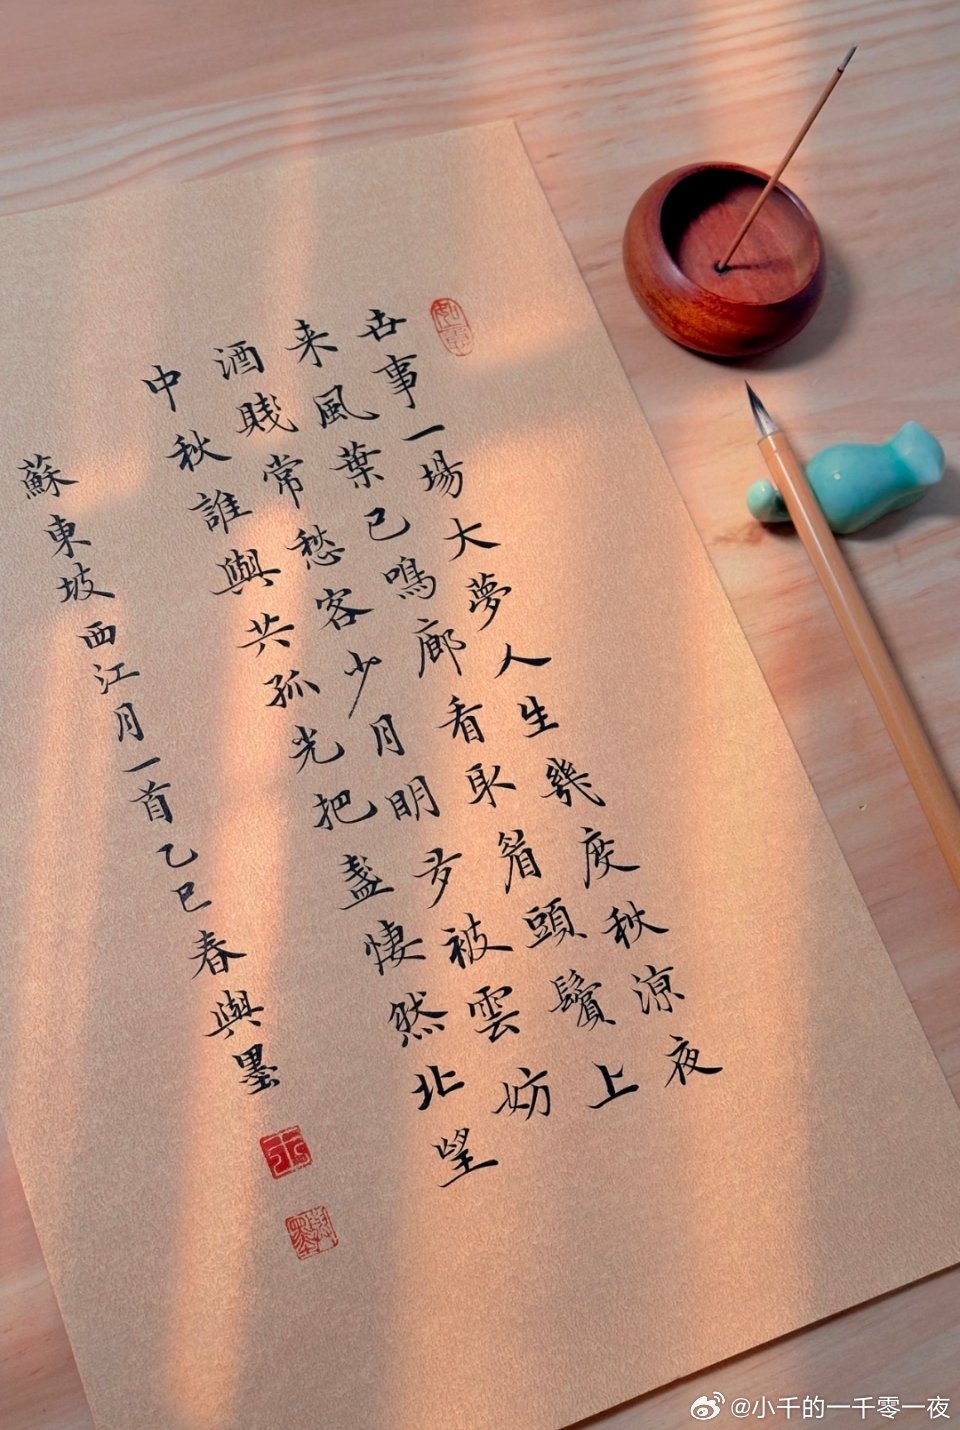 如意
世事一場大夢人生幾度秋涼夜
来風葉已鳴廊看取眉頭鬢上
酒賤常愁客少月明多被雲妨
中秋誰與共孤光把盞悽然北望
蘇東坡西江月一首乙巳春與墨
@小千的一千零一夜